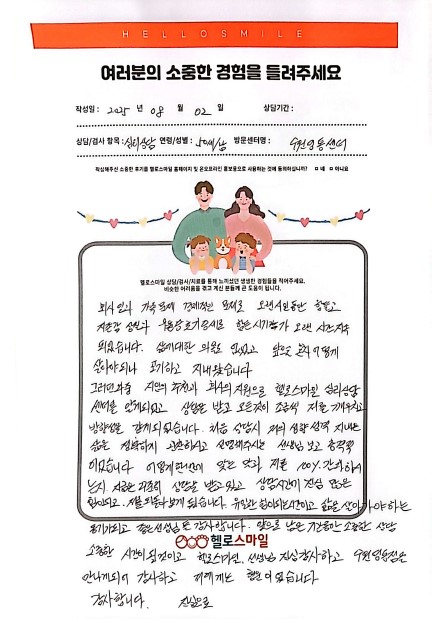 HELLOSMILE
여러분의 소중한 경험을 들려주세요
작성일 : 2025 년 08 월 02 일 상담기간 :
상담/검사 항목 : 심리상담 연령/성별 : 50세/남 방문센터명 : 수원영통센터
작성해주신 소중한 후기를 헬로스마일 홈페이지 및 온오프라인 홍보용으로 사용하는 것에 동의하십니까? □ 네 □ 아니요
헬로스마일 상담/검사/치료를 통해 느끼셨던 생생한 경험들을 적어주세요.
비슷한 어려움을 겪고 계신 분들께 큰 도움이 됩니다.
회사 일과 가족 문제 경제적인 문제로 오랜시간동안 힘들고
자존감 상실과 우울증 초기증세로 힘든 시기가 오랜 시간 지속
되었습니다. 삶에대한 의욕도 없었고 앞으로 어떻게
살아야되나 포기하고 지내왔습니다
그러던와중 지인의 추천과 회사의 지원으로 헬로스마일 심리상담
센터를 알게되었고 상담을 받고 모든것이 조금씩 저를 깨우치고
방향성을 갖게되었습니다. 처음 상담시 저의 성향 성격 지내온
삶을 정확하게 설명해주시는 선생님 보고 충격적
이었습니다 어떻게 저를 100% 간파하시
는지 지금은 꾸준히 상담을 받고 있고 상담시간이 진심 많은
힘이되고 저를 되돌아 보게 됩니다. 유일한 힘이되는시간이고 삶을 살아가야하는
용기가되고 좋은선생님 또 감사합니다. 앞으로 남은 기간동안 소중한 상담
헬로스마일
소중한 시간이 될것이고 헬로스마일, 선생님 진심감사하고 수원영통점을
만나게되어 감사하고 저에게는 행운이었습니다
감사합니다. 진심으로